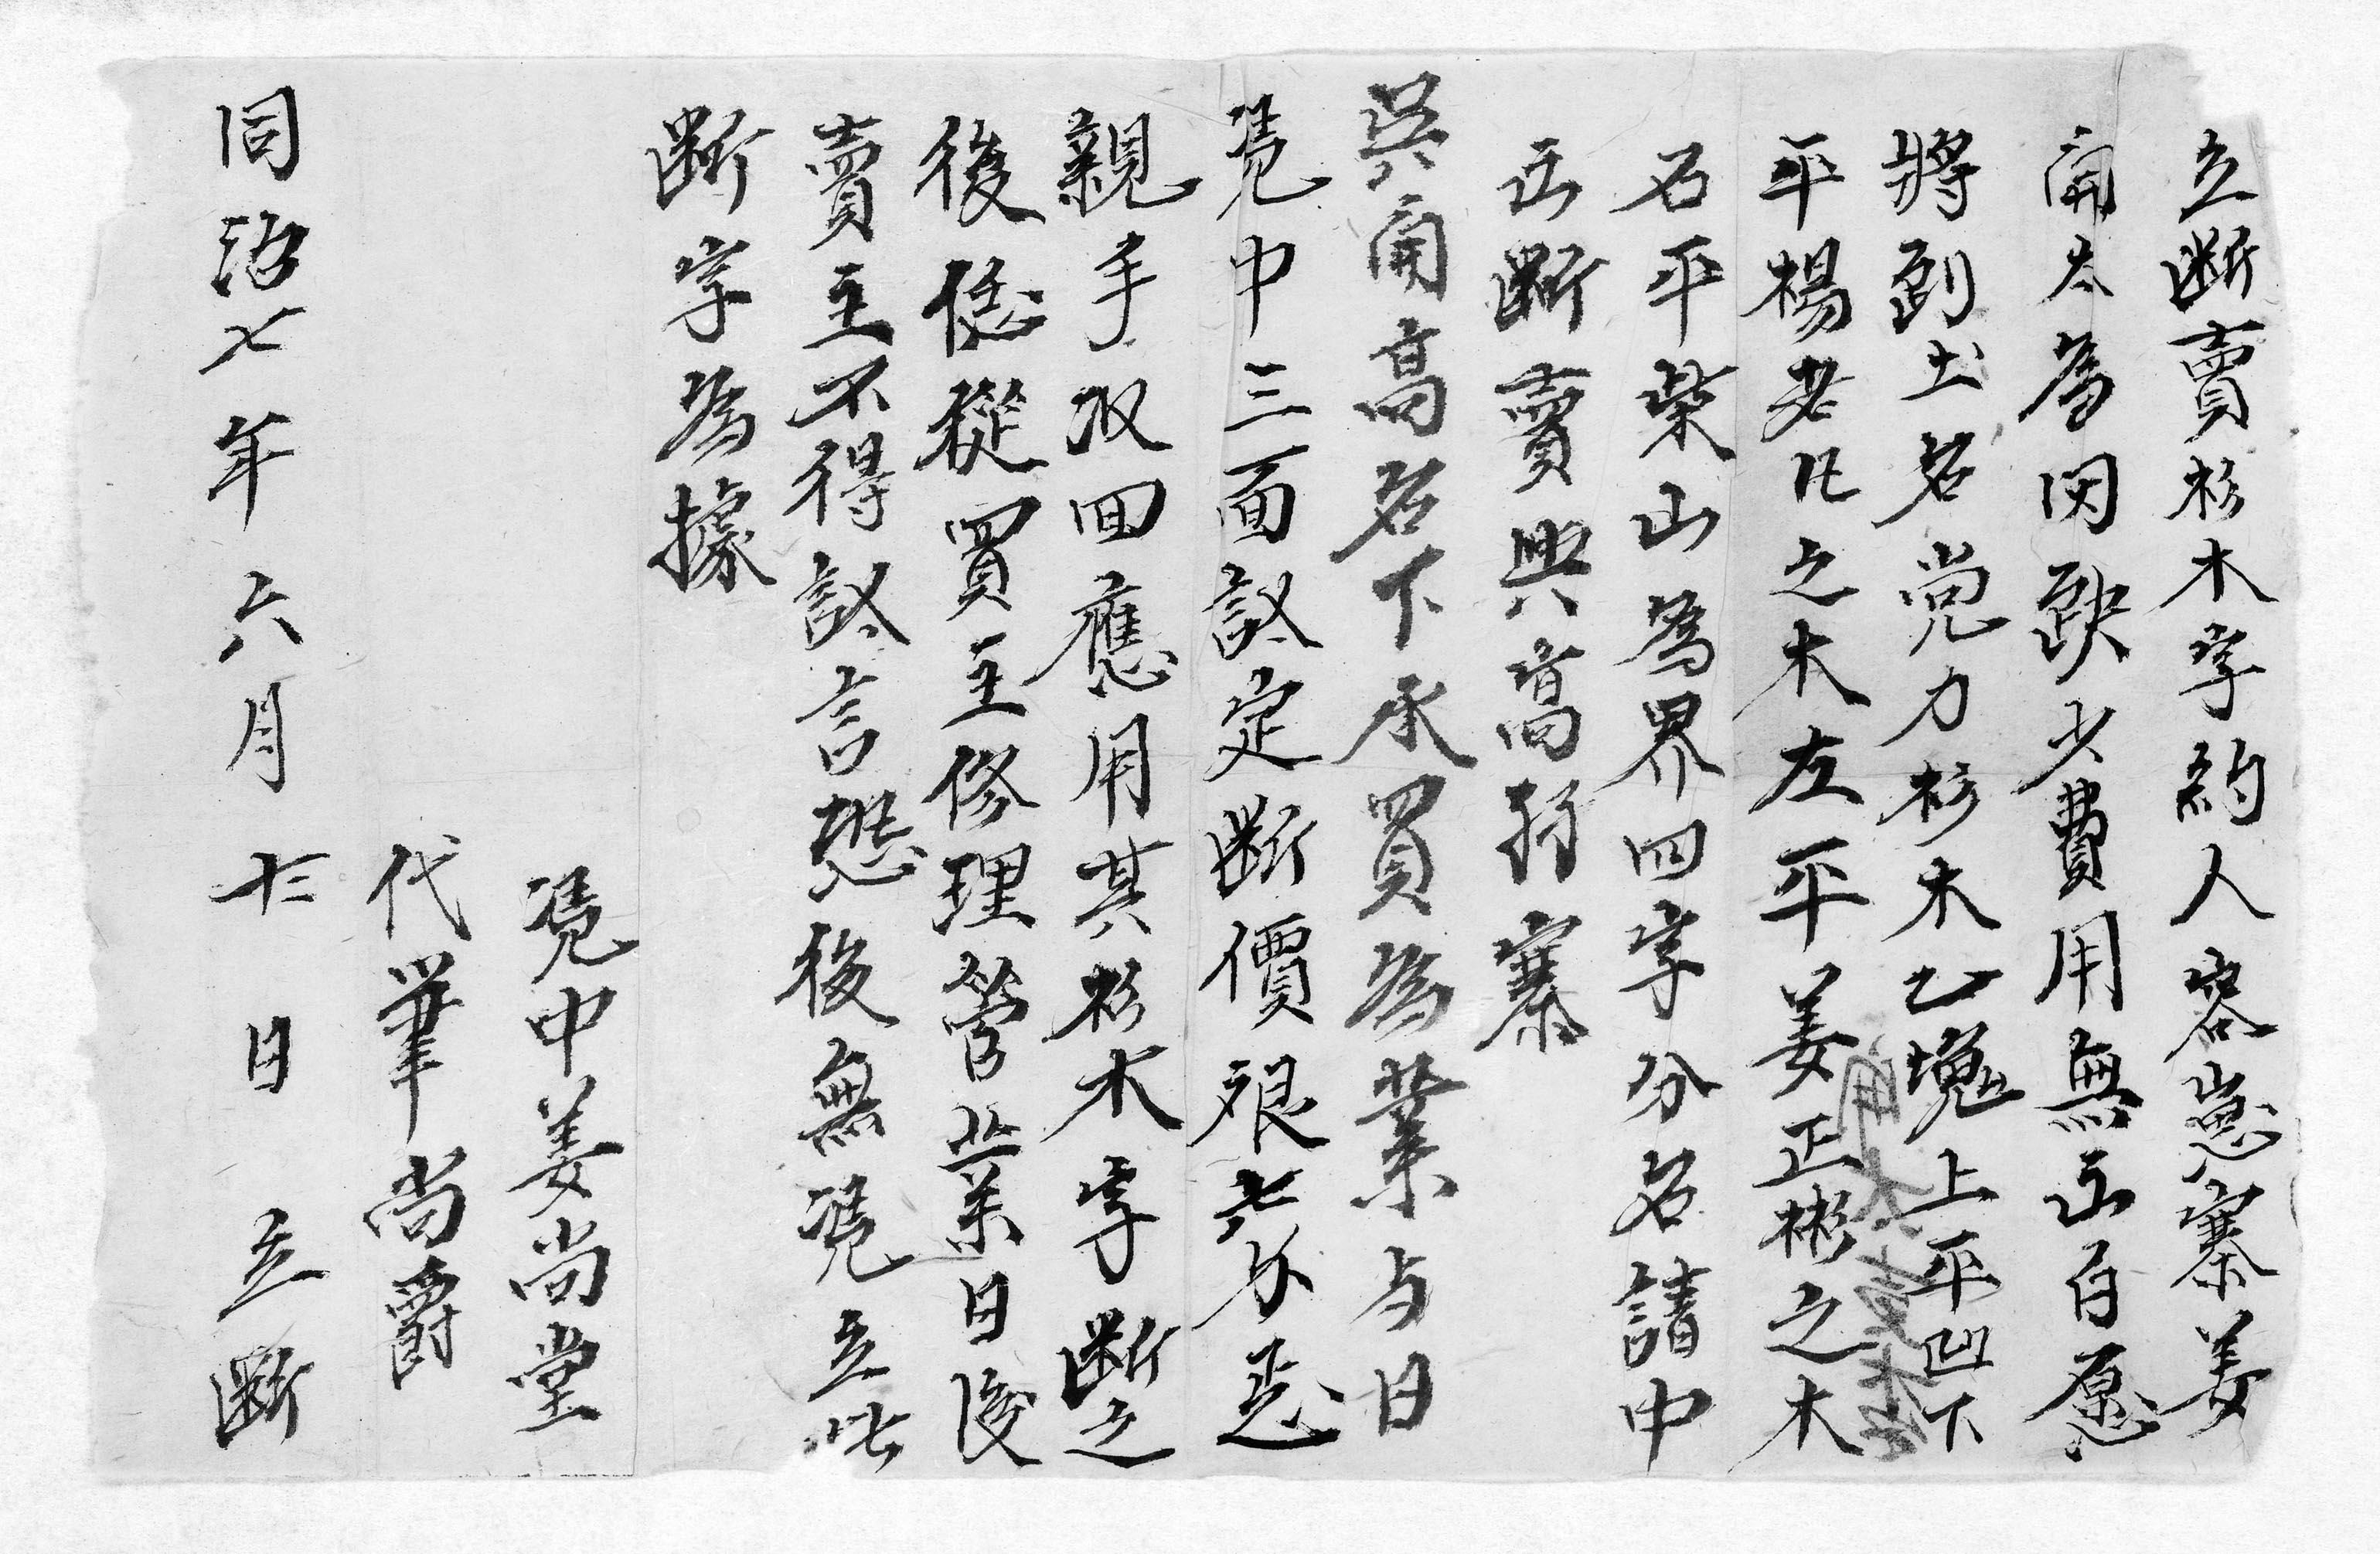 立断賣杉木字約人容嵩寨姜
開太為因缺少費用無出自愿
將到土名党力杉木乙塊上平凹下
平楊老化之木左平姜正彬之木
右平柴山為界四字分名請中
出断賣與髙扒寨
吳開髙名下承買為業与日
凴中三面議定断價艮七分乏
親手収回應用其杉木字断之
後恁從買主修理管業日後
賣主不得議言憑後無凴立此
断字為據
凴中姜尚堂
代筆尚爵
同治七年六月十三日立断